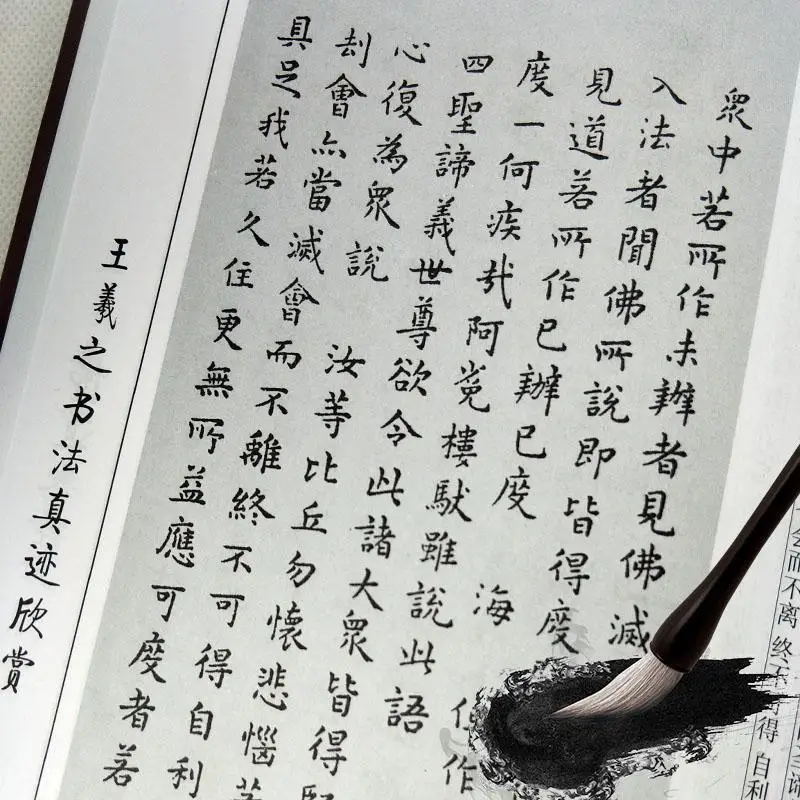 衆中若所作未辦者見佛滅
入法者聞佛所說即皆得度
見道若所作已辦已度 海 作
度一何疾哉阿㝹樓馱雖說此語
四聖諦義世尊欲令此諸大衆皆得
心復為衆說 汝等比丘勿懷悲惱若
刦會亦當滅會而不離終不可得自利
具足我若久住更無所益應可度者若
王羲之书法真迹欣赏
而不离 终不 得 自利